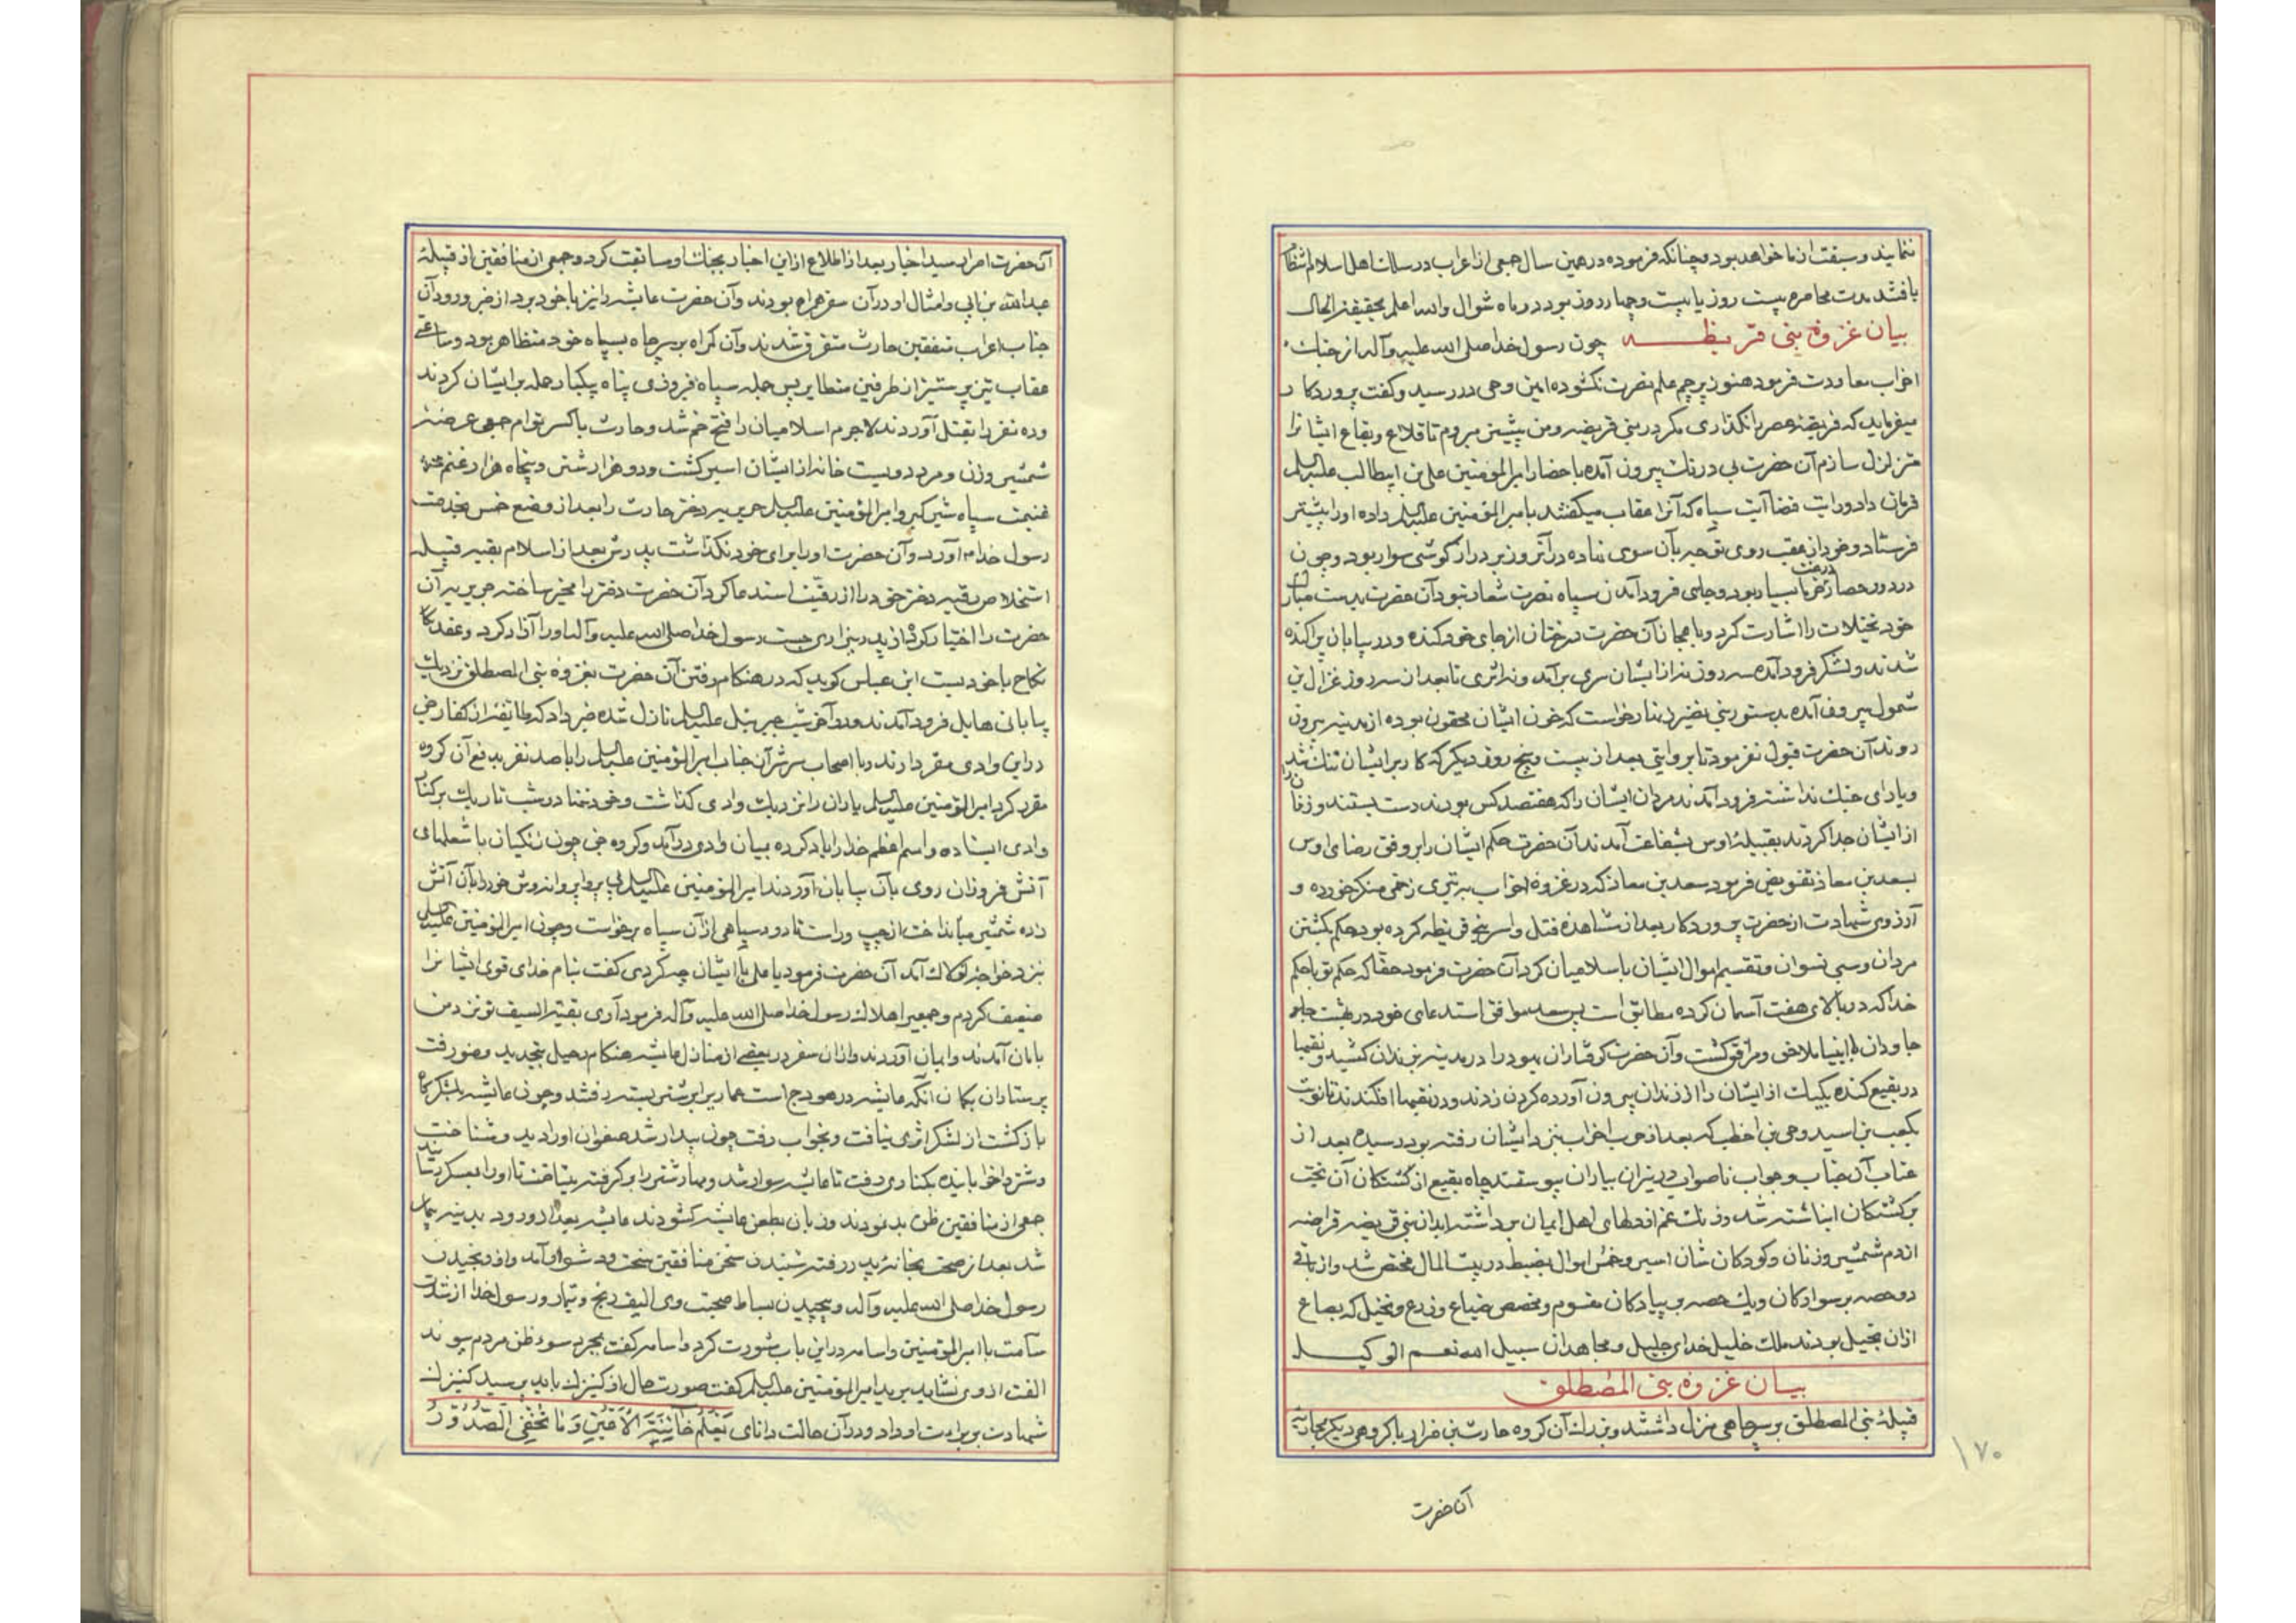 نمایند و سبقت از ما خواهد بود و چنانکه فرموده در همین سال جمعی از اعراب در سلک اهل اسلام انتظام
یافتند مدت محاصره بیست روز یا بیست و چهار روز بود در ماه شوال والله اعلم بحقیقة الحال
بیان غزوه بنی قریظه چون رسول خدا صلی الله علیه وآله از جنک
احزاب معاودت فرمود هنوز پرچم علم نصرت نکشوده امین وحی در رسید و کفت پروردکار
میفرماید که فریضه عصر را نکذاری مکر در بنی قریضه و من پیشتر میروم تا قلاع و بقاع ایشانرا
متزلزل سازم آن حضرت بی درنک بیرون آمده باحضار امیرالمؤمنین علی بن ابیطالب علیه السلم
فرمان داد و رایت فضا آیت سیاه که آنرا عقاب میکفتند بامیرالمؤمنین علیه السلم داده او را پیشتر
فرستاد و خود از عقب روی توجه بآن سوی نهاده در آنروز بر دراز کوشی سوار بود و چون
در دور حصار درخت خرما بسیار بود و جای فرود آمدن سپاه نصرت شعار نبود آن حضرت بدست مبارک
خود نخیلات را اشارت کرد و باعجاز آن حضرت درختان از جای خود کنده و در بیابان پراکنده
شدند و لشکر فرود آمده سه روز نه از ایشان سری برآمد و نه اثری تا بعد از سه روز غزال بن
شمول بیرون آمده بدستور بنی نضیر زینهار خواست که خون ایشان محقون بوده از مدینه بیرون
روند آن حضرت قبول نفرمود تا بروایتی بعد از بیست و پنج روز دیکر که کار بر ایشان تنک شد
و یارای جنک نداشتند فرود آمدند مردان ایشان را که هفتصد کس بودند دست بستند و زنان را
از ایشان جدا کردند بقبیله اوس بشفاعت آمدند آن حضرت حکم ایشان را بر وفق رضای اوس
بسعد بن معاذ تفویض فرمود سعد بن معاذ که در غزوه احزاب به تیری زخمی منکر خورده و
آرزوی شهادت از حضرت پروردکار بعد از مشاهده قتل و اسر بنی قریظه کرده بود حکم بکشتن
مردان و سبی نسوان و تقسیم اموال ایشان باسلامیان کرد آن حضرت فرمود حقا که حکم تو با حکم
خدا که در بالای هفت آسمان کرده مطابق است پس سعد موافق استدعای خود در بهشت جای
جاودان با انبیا ملاحق و مرافق کشت و آن حضرت کرفتاران یهود را در مدینه بزندان کشید و نقبها
در بقیع کنده یکیک از ایشان را از زندان بیرون آورده کردن زدند و در نقبها افکندند تا نوبت
بکعب بن اسید و حی بن اخطب که بعد از حرب احزاب بنزد ایشان رفته بود رسید بعد از
عتاب آن جناب و جواب ناصواب در نیران بیاران پیوستند چاه بقیع از کشتکان آن تخت
برکشتکان انباشته شد و زنک غم از دلهای اهل ایمان برداشته ابدان بنی قریضه قراضه
از دم شمشیر و زنان و کودکان شان اسیر و خمس اموال بضبط در بیت المال مختص شد و از باقی
دو حصه بر سوارکان و یک حصه بر پیادکان مقسوم و مخصص ضیاع و زرع و نخیل که بصاع
ازان بخیل بودند ملک خلیل خدای جلیل و مجاهدان سبیل الله نعم الوکیل
بیان غزوه بنی المصطلق
قبیله بنی المصطلق بر سر چاهی منزل داشتند و بزرک آن کروه حارث بن ضرار با کروهی دیکر بمحاربه
آنحضرت
۱۷۰
آن حضرت امر اسید اخبار بعد از اطلاع از این اخبار بجنک او مسابقت کرد و جمعی از منافقین از قبیله
عبدالله بن ابی و امثال او در آن سفر همراه بودند و آن حضرت عایشه را نیز با خود برد از خبر ورود آن
جناب اعراب متفقین حارث متفرق شدند و آن کمراه بر سر چاه بسپاه خود متظاهر بود و ساعتی
عقاب تیز پر ستیز از طرفین متطایر پس جمله سپاه فیروزی پناه یکبار حمله بر ایشان کردند
و ده نفر را بقتل آوردند لاجرم اسلامیان را فتح ختم شد و حارث با کسر توام جمعی عرضه
شمشیر و زن و مرد دویست خانه از ایشان اسیر کشت و دو هزار شتر و پنجاه هزار غنم
غنیمت سپاه شیر کیر و امیرالمؤمنین علیه السلم جویریه دختر حارث را بعد از وضع خمس بخدمت
رسول خدا آورد و آن حضرت او را برای خود نکذاشت پدرش بعد از اسلام بقیه قبیله
استخلاص رقبه دختر خود را از رقیت استدعا کرد آن حضرت دختر را مخیر ساخته جویریه آن
حضرت را اختیار کرد و از پدر بیزاری جست رسول خدا صلی الله علیه وآله او را آزاد کرد و عقد
نکاح با خود بست ابن عباس کوید که در هنکام رفتن آن حضرت بغزوه بنی المصطلق نزدیک
بیابانی هایل فرود آمدند و در آخر شب جبرئیل علیه السلم نازل شده خبر داد که طایفه از کفار جن
در این وادی مقر دارند و با اصحاب سر شر آن جناب امیرالمؤمنین علیه السلم را با صد نفر بدفع آن کروه
مقرر کرد امیرالمؤمنین علیه السلم یاران را نزدیک وادی کذاشت و خود تنها در شب تاریک بر کنار
وادی ایستاده و اسم اعظم خدا را یاد کرده بمیان وادی درآمد و کروه جن چون زنکیان با شعلهای
آتش فروزان روی بآن بیابان آوردند امیرالمؤمنین علیه السلم بی پروا پروانه وش خود را بآن آتش
زده شمشیر میانداخت از چپ و راست تا دود سیاهی از آن سپاه برخواست و چون امیرالمؤمنین علیه السلم
بنزد خواجه لولاک آمد آن حضرت فرمود یا علی با ایشان چه کردی کفت بنام خدای قوی ایشانرا
ضعیف کردم و جمعی را هلاک رسول خدا صلی الله علیه وآله فرمود آری بقیة السیف تو نزد من
بامان آمدند و ایمان آوردند و ازان سفر در بعضی از منازل عایشه هنکام رحیل بتجدید وضو رفت
پرستاران بکمان آنکه عایشه در هودج است عماری را بر شتر بسته رفتند و چون عایشه بلشکرکاه
بازکشت از لشکر اثری نیافت و بخواب رفت چون بیدار شد صفوان او را دید و شناخت
و شتر را خوابانیده بکناری رفت تا عایشه سوار شد و مهار شتر را برکرفته بشتافت تا او را بعسکر رسانید
جمعی از منافقین ظن بد نمودند و زبان بطعن عایشه کشودند عایشه بعد از ورود بمدینه بیمار
شد بعد از صحت بخانه پدر رفته شنیدن سخن منافقین سخت و دشوار آمد و از رنجیدن
رسول خدا صلی الله علیه وآله و پیچیدن بساط صحبت وی الیف رنج و تیمار و رسول خدا از شدت
سآمت با امیرالمؤمنین و اسامه در این باب مشورت کرد و اسامه کفت بمجرد سوء ظن مردم پیوند
الفت از وی نشاید برید امیرالمؤمنین علیه السلم کفت صورت حال از کنیزک باید پرسید کنیزک
شهادت بر براءت او داد و در آن حالت دانای یَعْلَمُ خَائِنَةَ الْأَعْيُنِ وَمَا تُخْفِي الصُّدُورُ